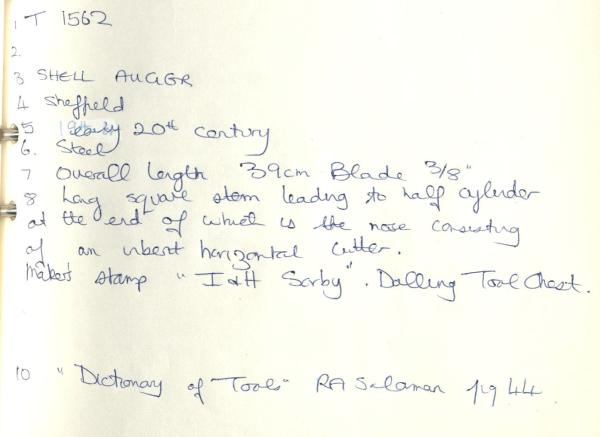 1 T 1562
2.
3 SHELL AUGER
4 Sheffield
5 early 20th century
6. Steel
7 Overall length 39cm Blade 3/8"
8 Long square stem leading to half cylinder
at the end of which is the nose consisting
of an inbent horizontal cutter.
Makers stamp "I & H Sorby". Dalling Tool Chest.
10 "Dictionary of Tools" RA Salaman pg 44